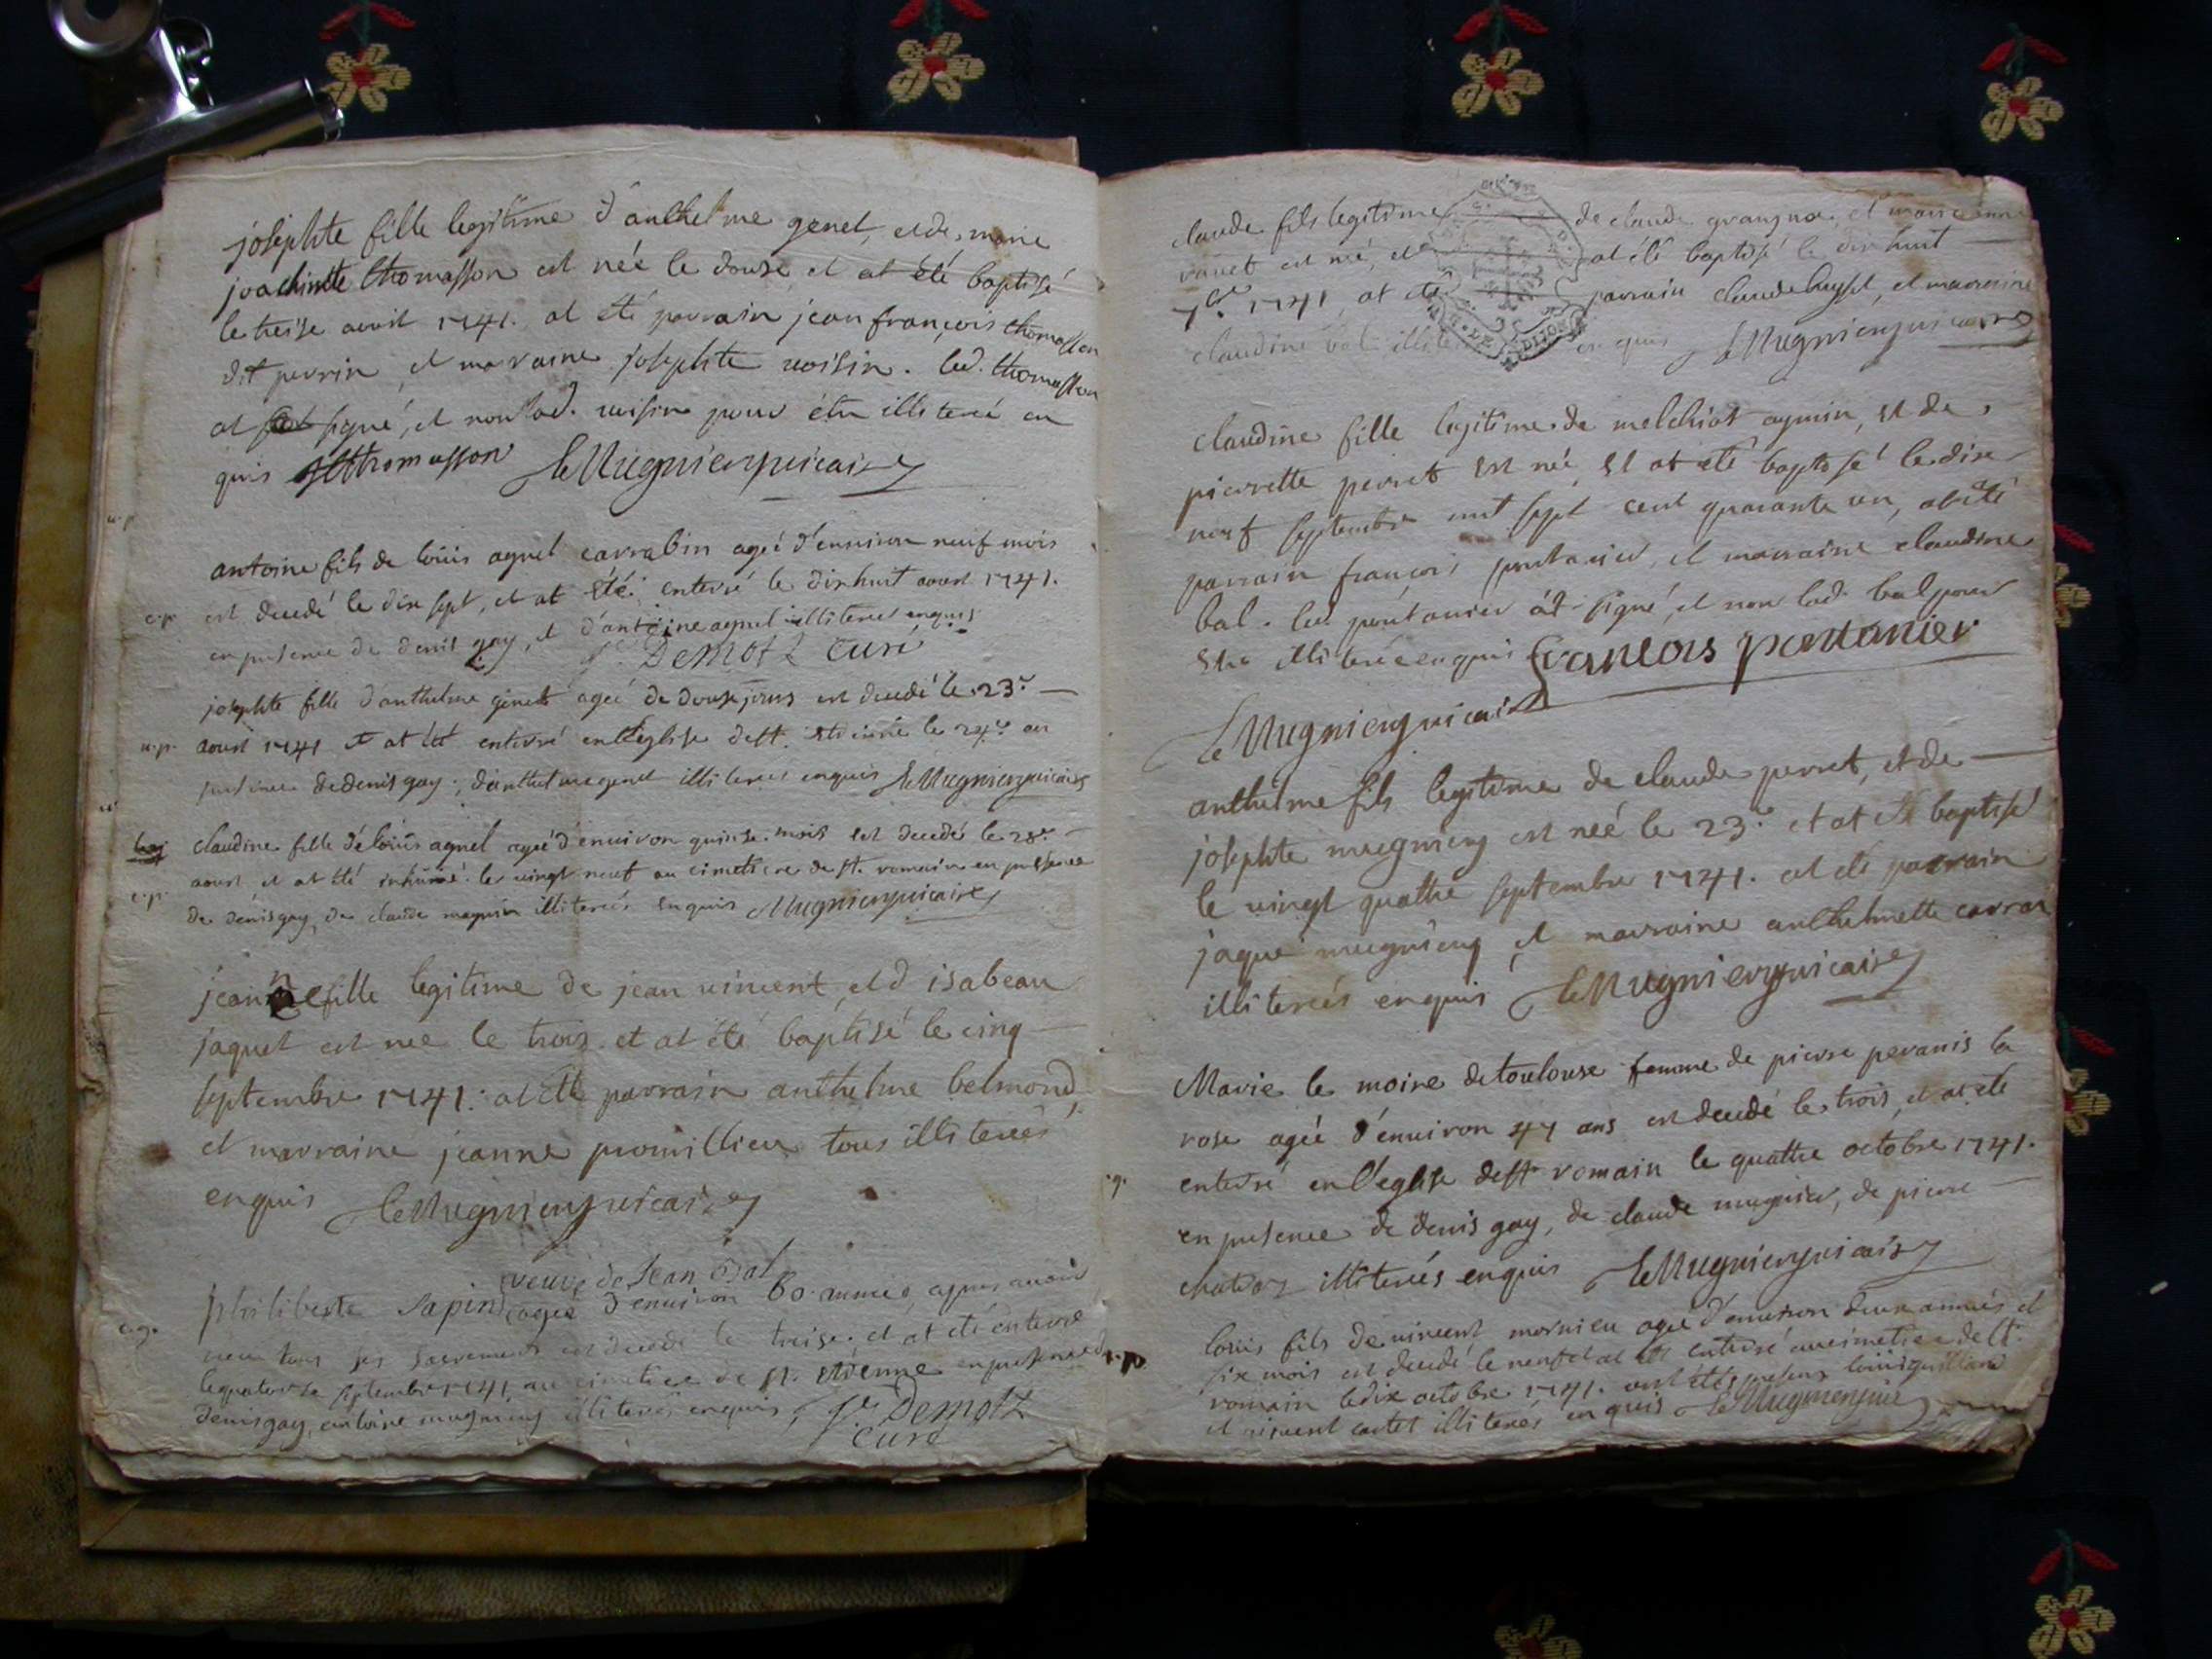 josephte fille legitime d'anthelme genet, et de, marie
joachimette thomasson est née le douze, et at été baptisé
le treise aout 1741. at été parrain jean françois thomasson
dit perrin, et marraine josephte voisin. led. thomasson
at signé, et non lad. voisin pour étre illiterée en
quis thomasson Mugnieryvicaire
antoine fils de loüis agnel carrabin ageé d'environ neuf mois
e.p. est decedé le dix sept, et at été enterré le dixhuit aoust 1741.
en presence de denis gay, et d'antoine agnel illiterés enquis
Demotz curé
josephte fille d'anthelme genet ageé de douse jours est decedé le 23e
n.p. aoust 1741 et at été enterré en l'eglise de st. etienne le 24e en
presence de denis gay, d'anthelme genet illiterés enquis Mugnieryvicaire
claudine fille de loüis agnel ageé d'environ quinse mois est decedée le 28e
aoust, et at été inhumé le vingt neuf au cimetiere de st. romain en presence
e.p. de denis gay, de claude magnin illiterés enquis Mugnieryvicaire
jeanne fille legitime de jean vincent, et d'isabeau
jaquet est née le trois et at été baptisé le cinq
septembre 1741. at été parrain anthelme belmond
et marraine jeanne promillieu tous illiterés
enquis Mugnieryvicaire
veuve de Jean
philiberte Sapin ageé d'environ 60 années, apres avoir
receu tous ses sacrements est decedé le treise, et at été enterré
le quatorse septembre 1741 au cimetiere de st. etienne en presence de
denis gay, antoine mugniery illiterés enquis Demotz
curé
claude fils legitime de claude grangno et
est né, et at été baptisé le dixhuit
7bre 1741, at été parrain claude et marraine
claudine bal illiterés enquis Mugnieryvicaire
claudine fille legitime de melchiot aymin, et de
pierrette perret est née, et at été baptisé le dix
neuf septembre mil sept cent quarante un, at été
parrain françois pontanier, et marraine claudine
bal. led. pontanier at signé, et non lad. bal pour
etre illiterée enquis francois pontanier
Mugnieryvicaire
anthelme fils legitime de claude perret, et de
josephte mugniery est neé le 23e et at été baptisé
le vingt quattre septembre 1741. at été parrain
jaque mugniery, et marraine anthelmette carrat
illiterés enquis Mugnieryvicaire
Marie le moine de toulouse femme de pierre peranis la
rose ageé d'environ 47 ans est decedé le trois, et at été
enterré en l'eglise de st romain le quattre octobre 1741.
en presence de denis gay, de claude mugnier, de pierre
illiterés enquis Mugnieryvicaire
loüis fils de vincent mornieu ageé d'environ deux années et
six mois est decedé le neuf et at été enterré au cimetiere de st.
romain le dix octobre 1741. ont étés presens loüis
et vincent cartet illiterés enquis Mugniery